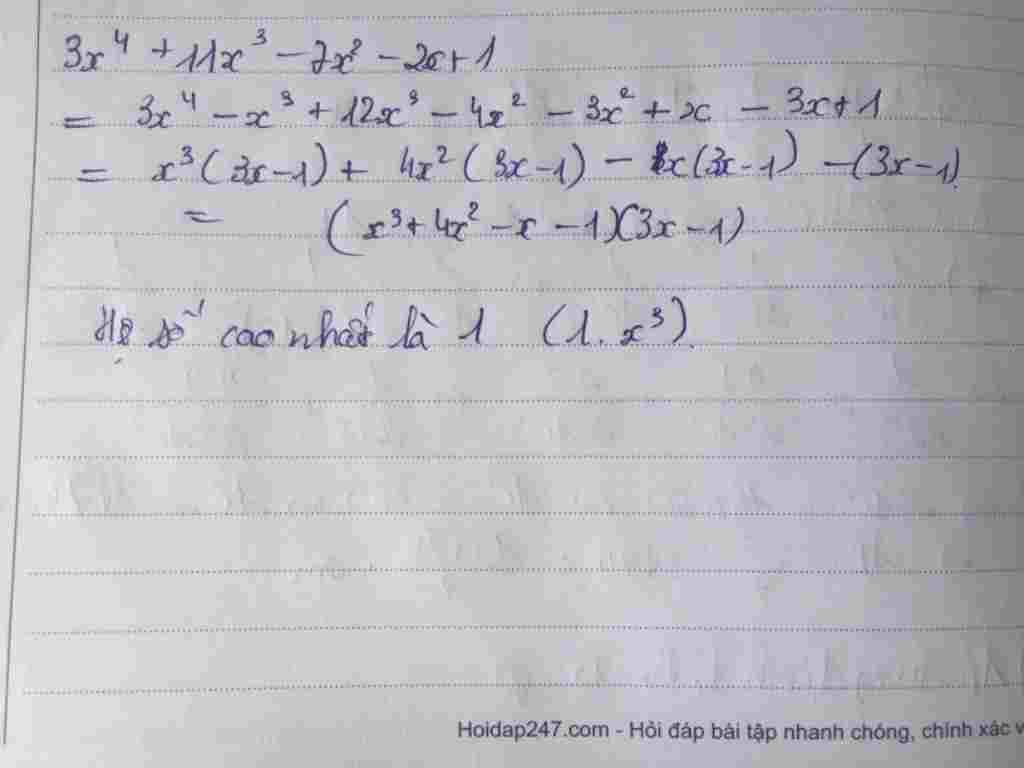 3x⁴ + 11x³ - 7x² - 2x + 1
= 3x⁴ - x³ + 12x³ - 4x² - 3x² + x - 3x + 1
= x³(3x-1) + 4x²(3x-1) - x(3x-1) - (3x-1)
= (x³ + 4x² - x - 1)(3x - 1)
Hệ số cao nhất là 1 (1. x³).
Hoidap247.com - Hỏi đáp bài tập nhanh chóng, chính xác v